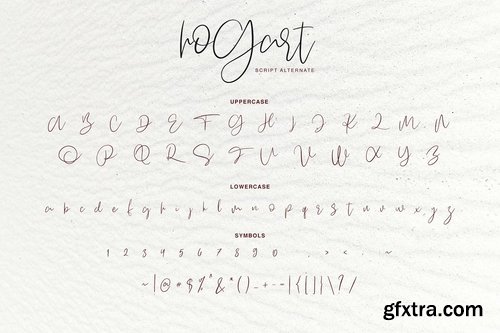 hogart
SCRIPT ALTERNATE
UPPERCASE
A B C D E F G H I J K L M N
O P Q R S T U V W X Y Z
LOWERCASE
a b c d e f g h i j k l m n o p q r s t u v w x y z
SYMBOLS
1 2 3 4 5 6 7 8 9 0 , > < . ~
~ | @ # $ % ^ & * ( ) _ + - - | { [ ] } \ ? /
gfxtra.com